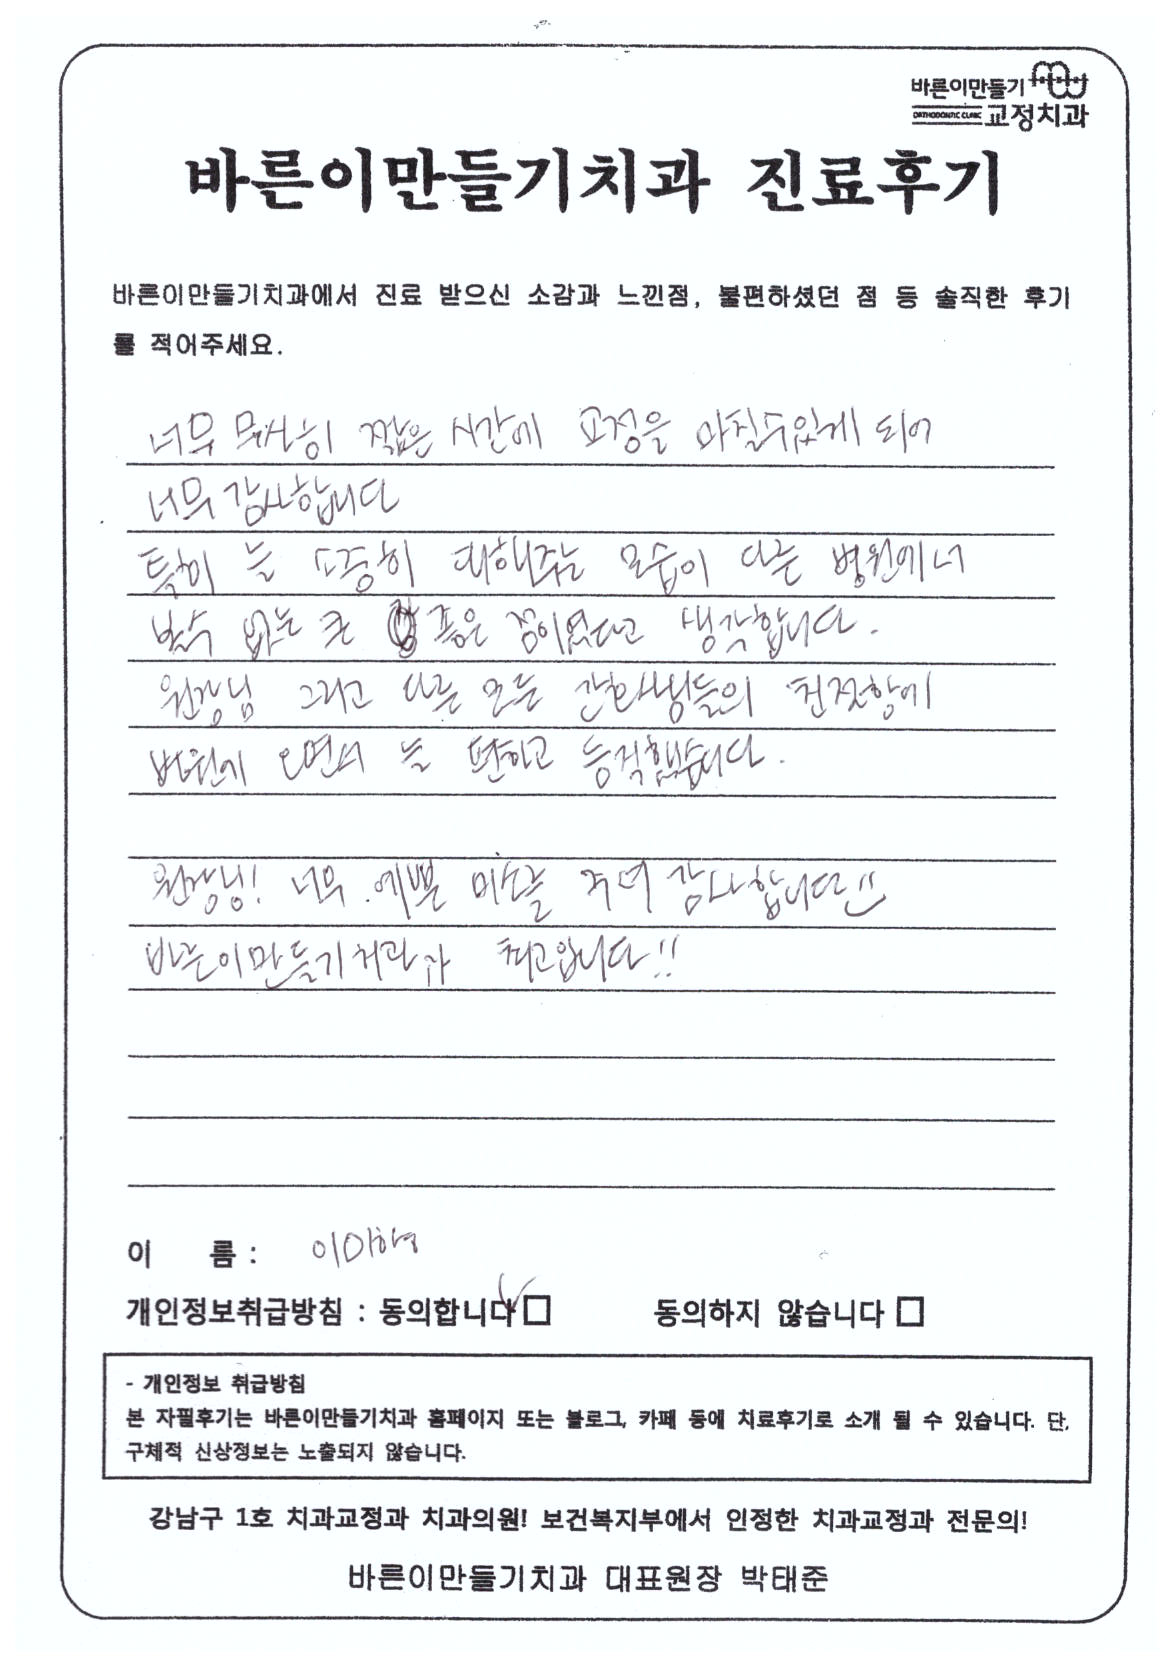 바른이만들기
ORTHODONTIC CLINIC 교정치과
바른이만들기치과 진료후기
바른이만들기치과에서 진료 받으신 소감과 느낀점, 불편하셨던 점 등 솔직한 후기
를 적어주세요.
너무 무사히 짧은 시간에 교정을 마칠수있게 되어
너무 감사합니다
특히 늘 소중히 대해주는 모습이 다른 병원에서
볼수 없는 큰 좋은 점이었다고 생각합니다.
원장님 그리고 다른 모든 간호사님들의 친절함에
병원에 오면서 늘 편하고 즐거웠습니다.
원장님! 너무 예쁜 미소를 주셔 감사합니다!!
바른이만들기치과가 최고입니다!!
이 름 :
개인정보취급방침 : 동의합니다 □ 동의하지 않습니다 □
- 개인정보 취급방침
본 자필후기는 바른이만들기치과 홈페이지 또는 블로그, 카페 등에 치료후기로 소개 될 수 있습니다. 단,
구체적 신상정보는 노출되지 않습니다.
강남구 1호 치과교정과 치과의원! 보건복지부에서 인정한 치과교정과 전문의!
바른이만들기치과 대표원장 박태준